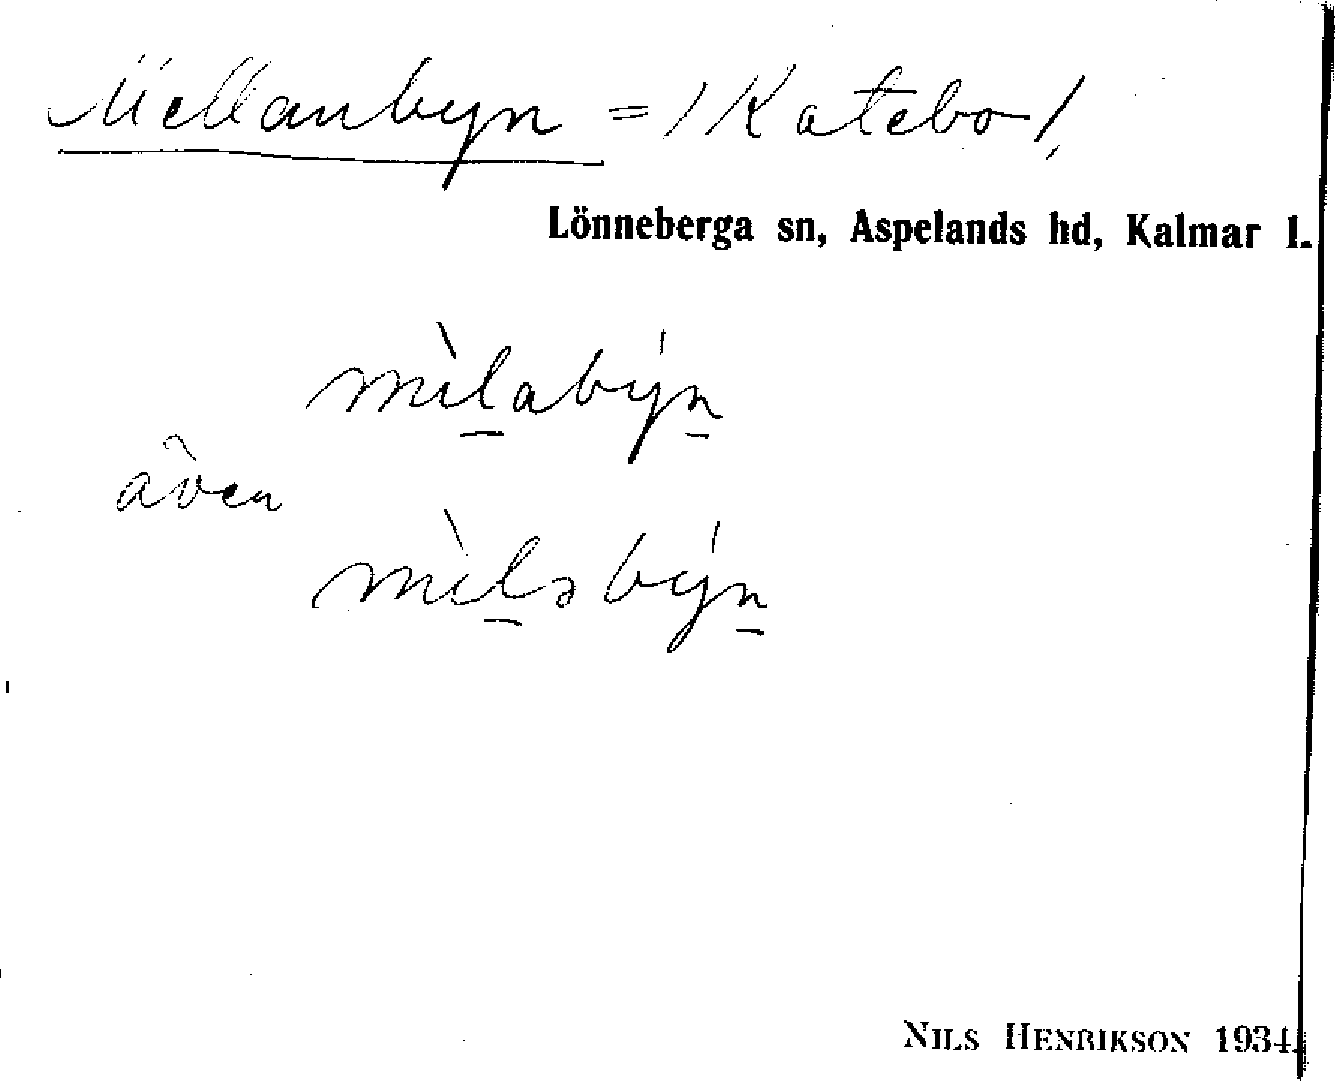 Mellanbyn = / Katebo /,
Lönneberga sn, Aspelands hd, Kalmar l.
mìl̲abýn̲
även
mìl̲əbýn̲
NILS HENRIKSON 1934.